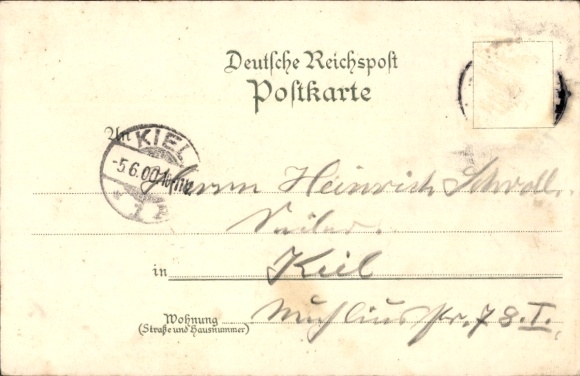 Deutsche Reichspost
Postkarte
An
KIEL
-5.6.00
Herrn Heinrich
in Kiel
Wohnung
(Straße und Hausnummer)
Muhliusstr. 78. I.